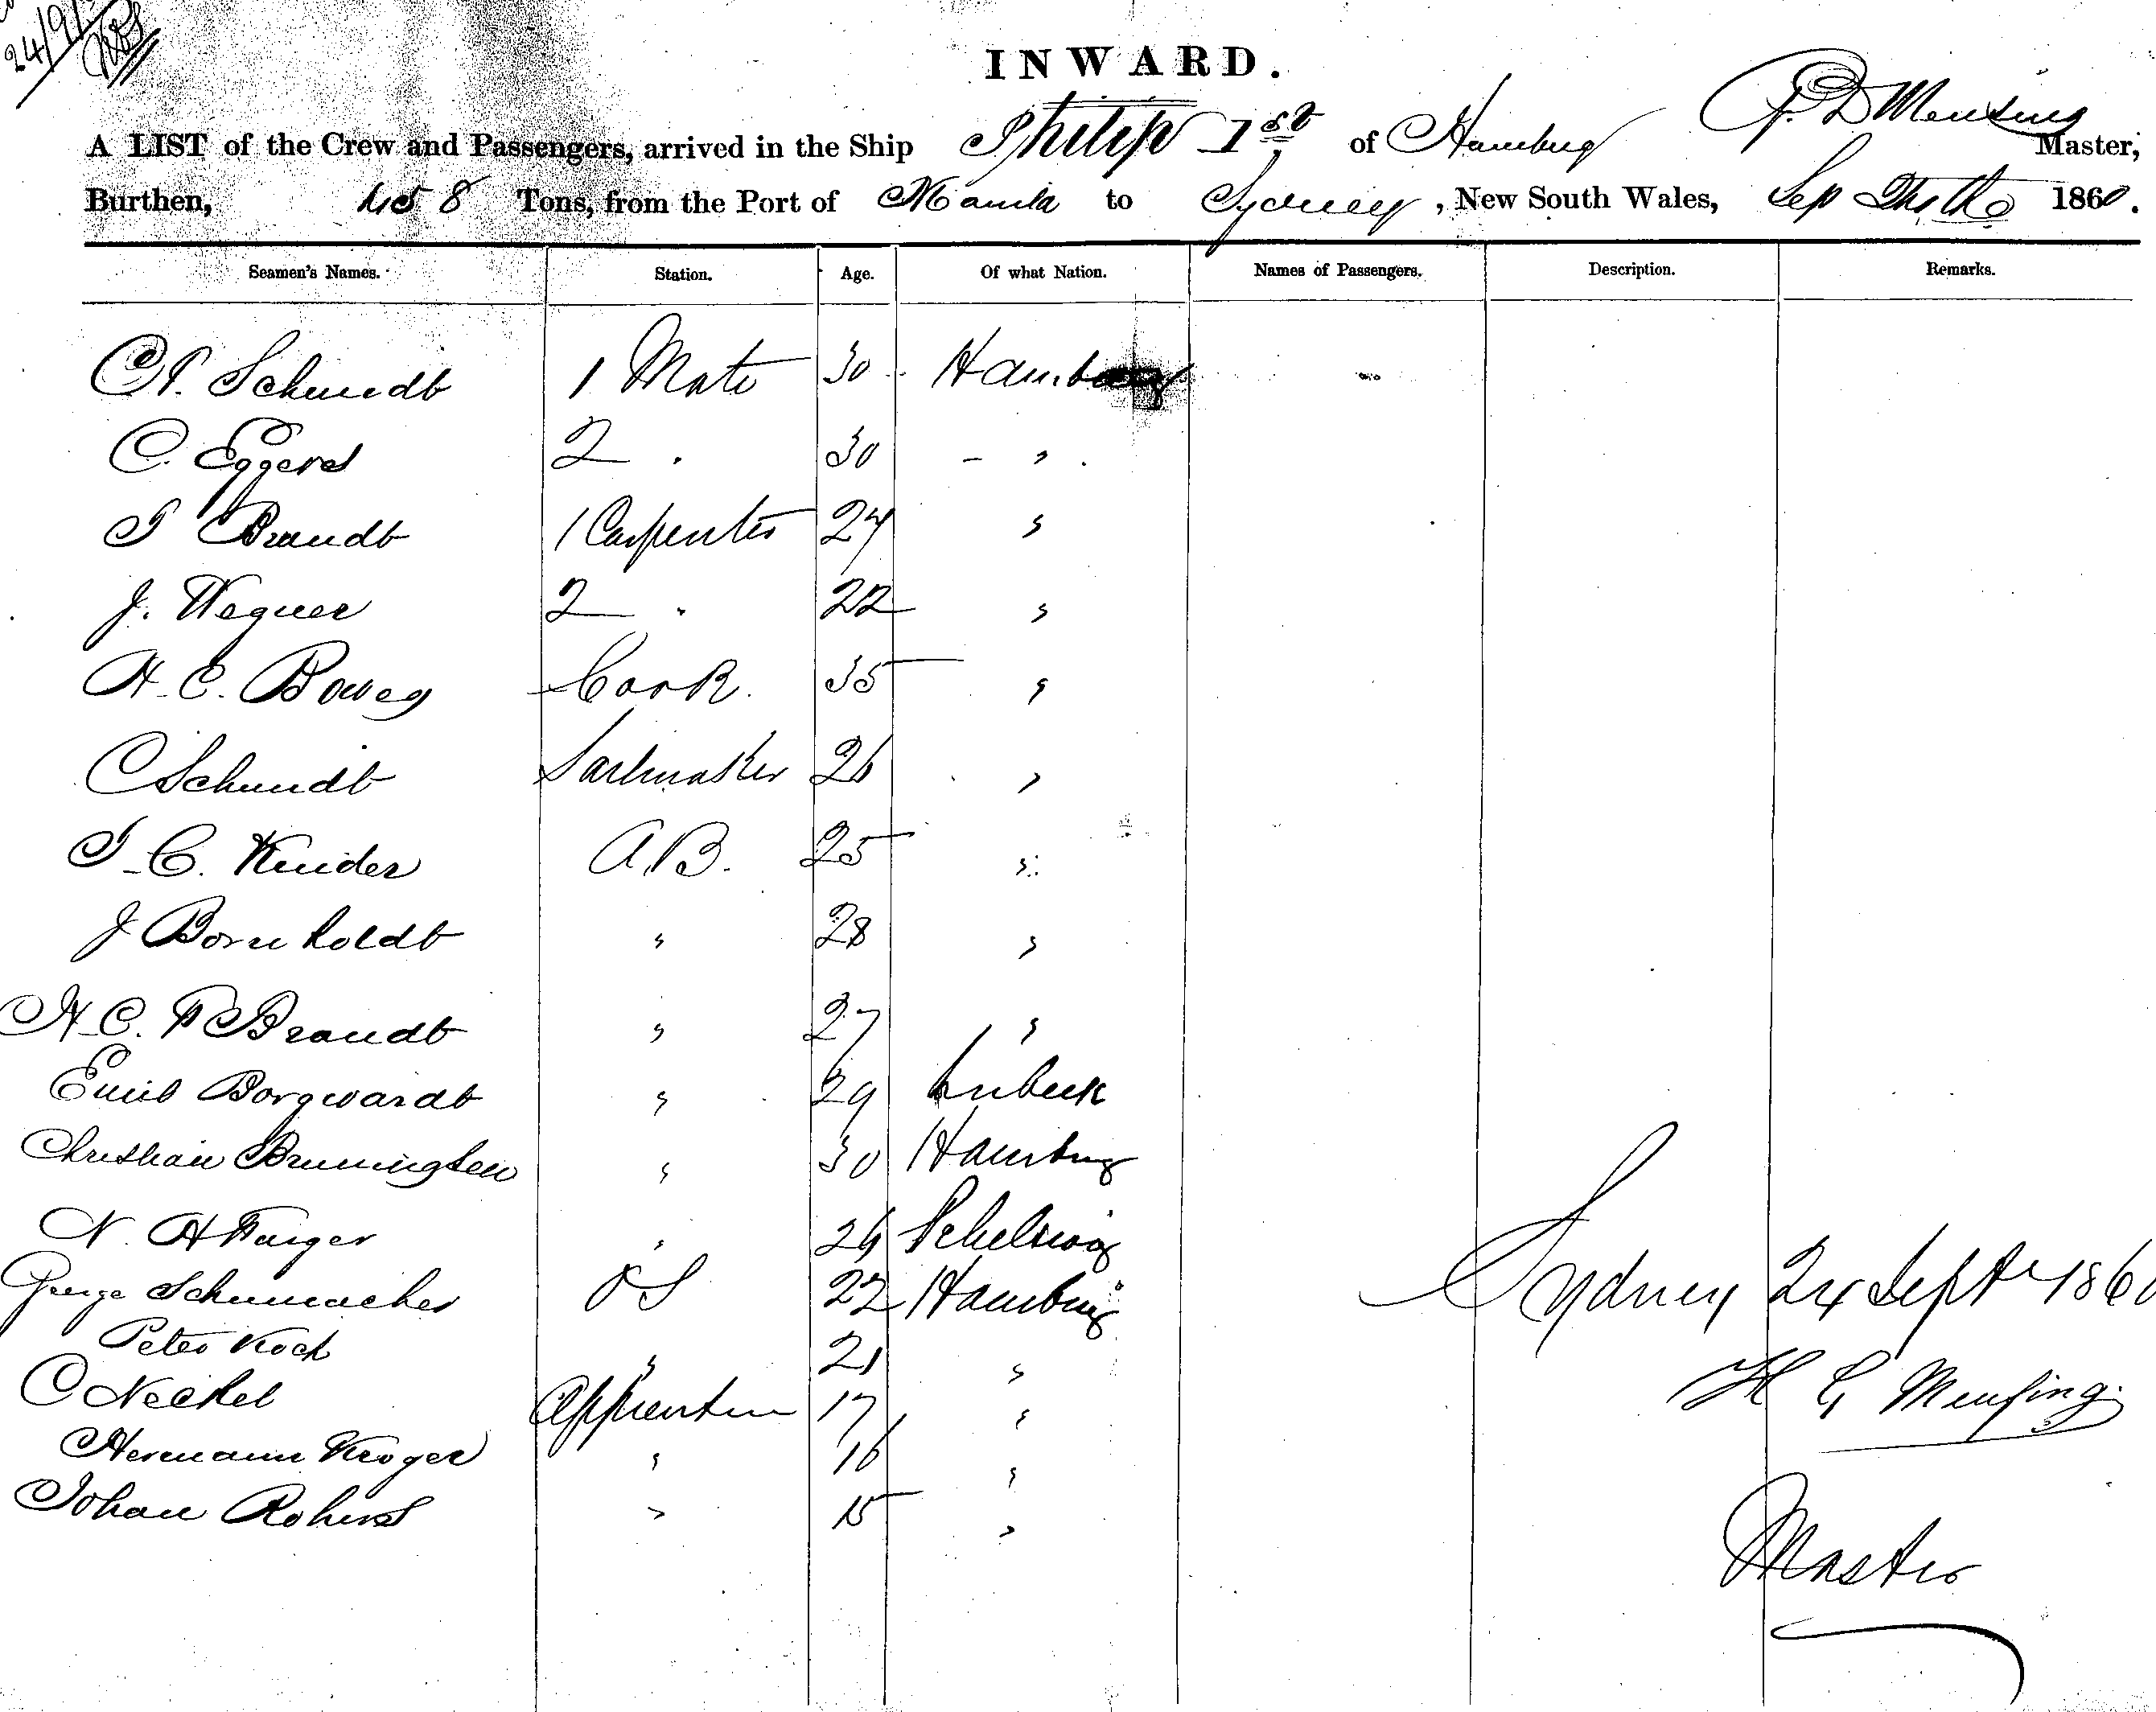 24/9/
INWARD.
A LIST of the Crew and Passengers, arrived in the Ship Philip 1st of Hamburg Mensing Master,
Burthen, 458 Tons, from the Port of Manila to Sydney, New South Wales, Sep 1860.
Seamen's Names. Station. Age. Of what Nation. Names of Passengers. Description. Remarks.
Schmidt 1 Mate 30 Hamburg
C. Eggers 2 " 30 "
Brandt 1 Carpenter 24 "
J. Wegner 2 " 22 "
H. C. Boweg Cook. 35 "
C Schmidt Sailmaker 26 "
C. Kinder A.B. 25 "
J Bornholdt " 28 "
H. C. F Brandt " 27 "
Emil Borgwardt " 29 Lubeck
Christian Brunington " 30 Hamburg
N. H " 26 Schelswig
George Schumacher O S 22 Hamburg
Peter Koch " 21 "
C Neckel Apprentice 17 "
Hermann Kroger " 16 "
Johan Rohers " 15 "
Sydney 24 Septr 1860
H Mensing.
Master